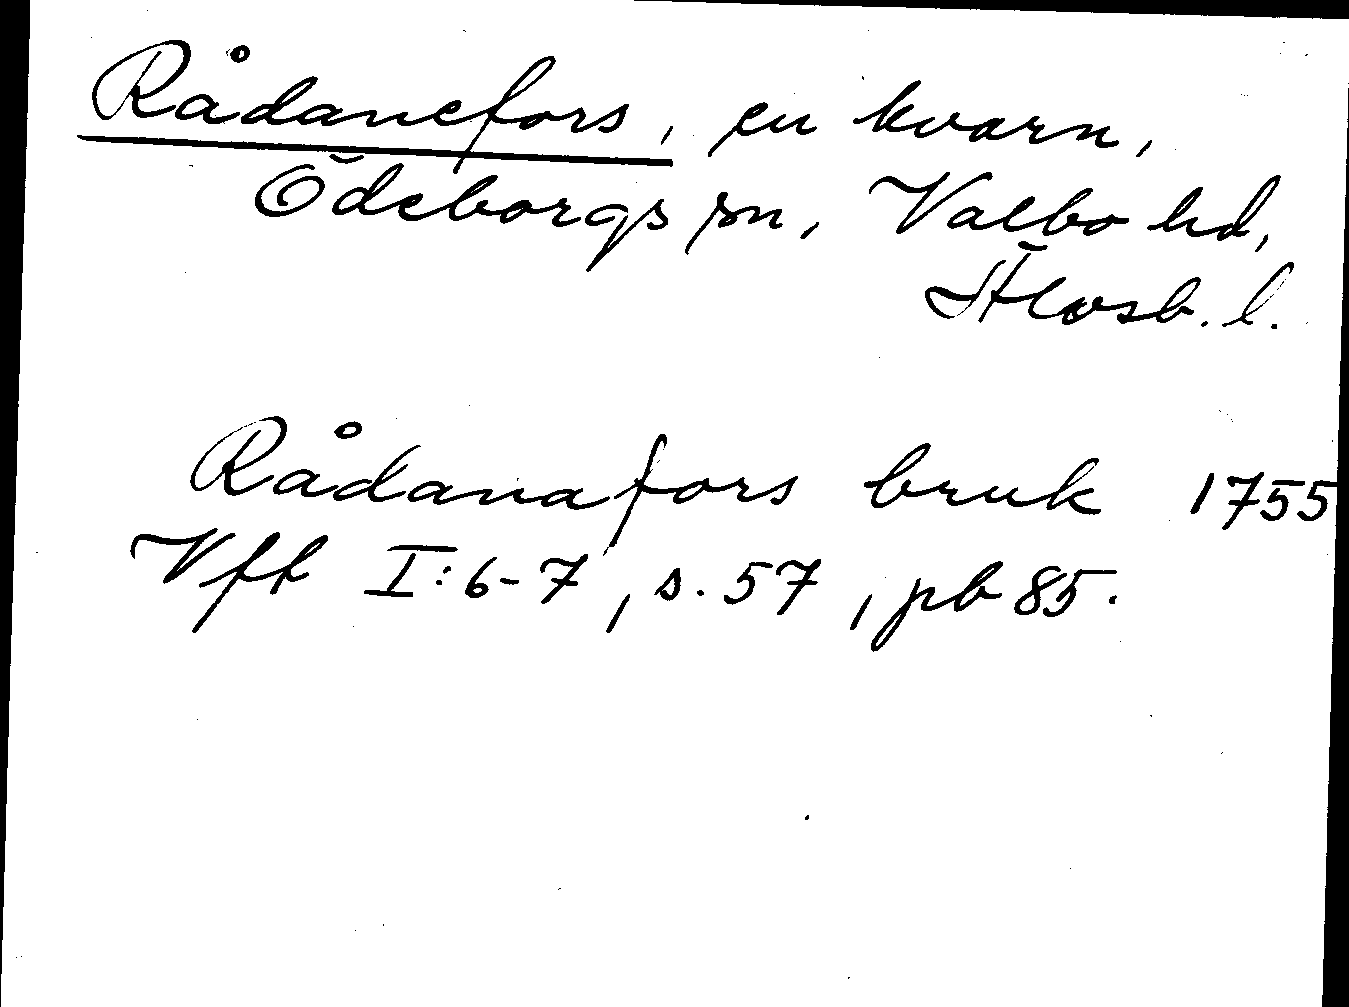 Rådanefors, en kvarn,
Ödeborgs sn, Valbo hd,
Älvsb. l.
Rådanafors bruk 1755
Vft I:6-7, s. 57, pb 85.